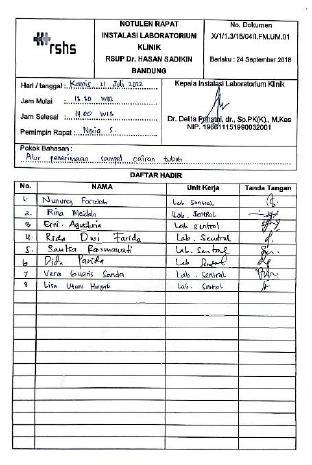 rshs
NOTULEN RAPAT
INSTALASI LABORATORIUM
KLINIK
RSUP Dr. HASAN SADIKIN
BANDUNG
No. Dokumen
Berlaku : 24 September 2018
Hari / tanggal : Kamis 21 Juli 2022
Jam Mulai : 13.30 WIB
Jam Selesai : 14.00 WIB
Pemimpin Rapat : Nina S.
Kepala Instalasi Laboratorium Klinik
Dr. Delita Prihatni, dr., Sp.PK(K)., M.Kes
NIP. 196611151998032001
Pokok Bahasan :
Alur penerimaan sampel cairan tubuh
DAFTAR HADIR
No. NAMA Unit Kerja Tanda Tangan
1. Nunung Faridah Lab Sentral
2. Rina Lab. Sentral
3 Erni Agustina Lab sentral
4 Rida Dwi Farida Lab. Sentral
5. Santa Rasmawati Lab. Sentral
6 Dida Farida Lab Sentral
7 Vera Sanda Lab. Sentral
8 Lisa Utami Lab. Sentral